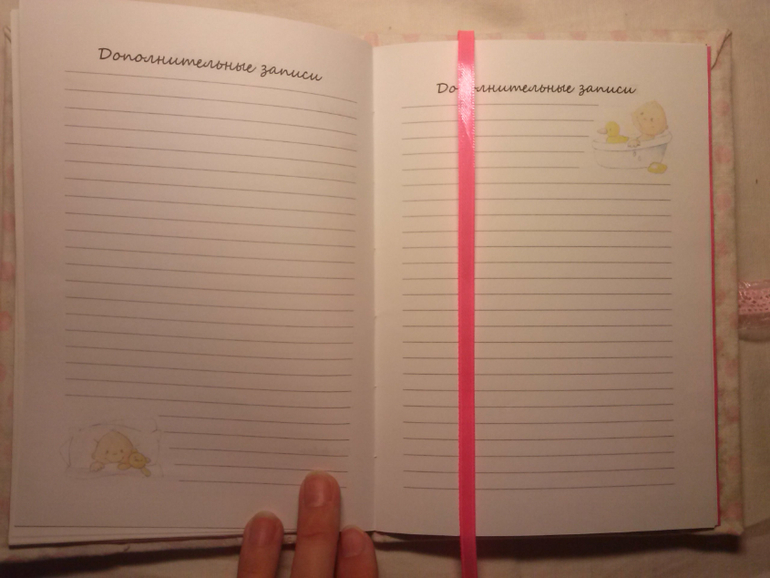 Дополнительные записи
Дополнительные записи